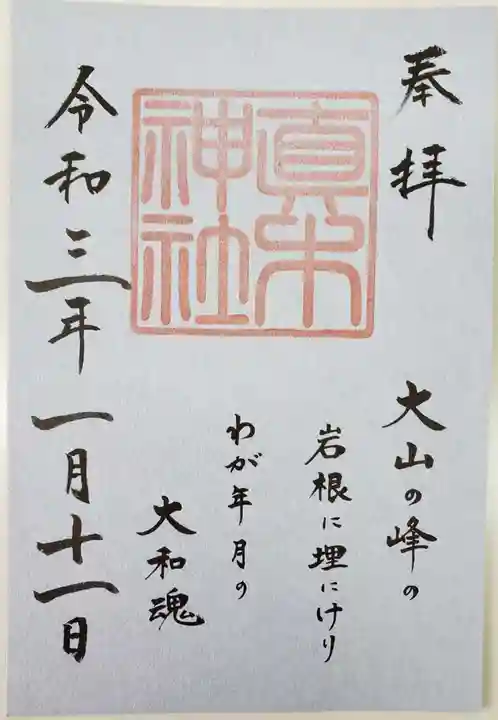 奉拝
真木
神社
大山の峰の
岩根に埋にけり
わが年月の
大和魂
令和三年一月十一日